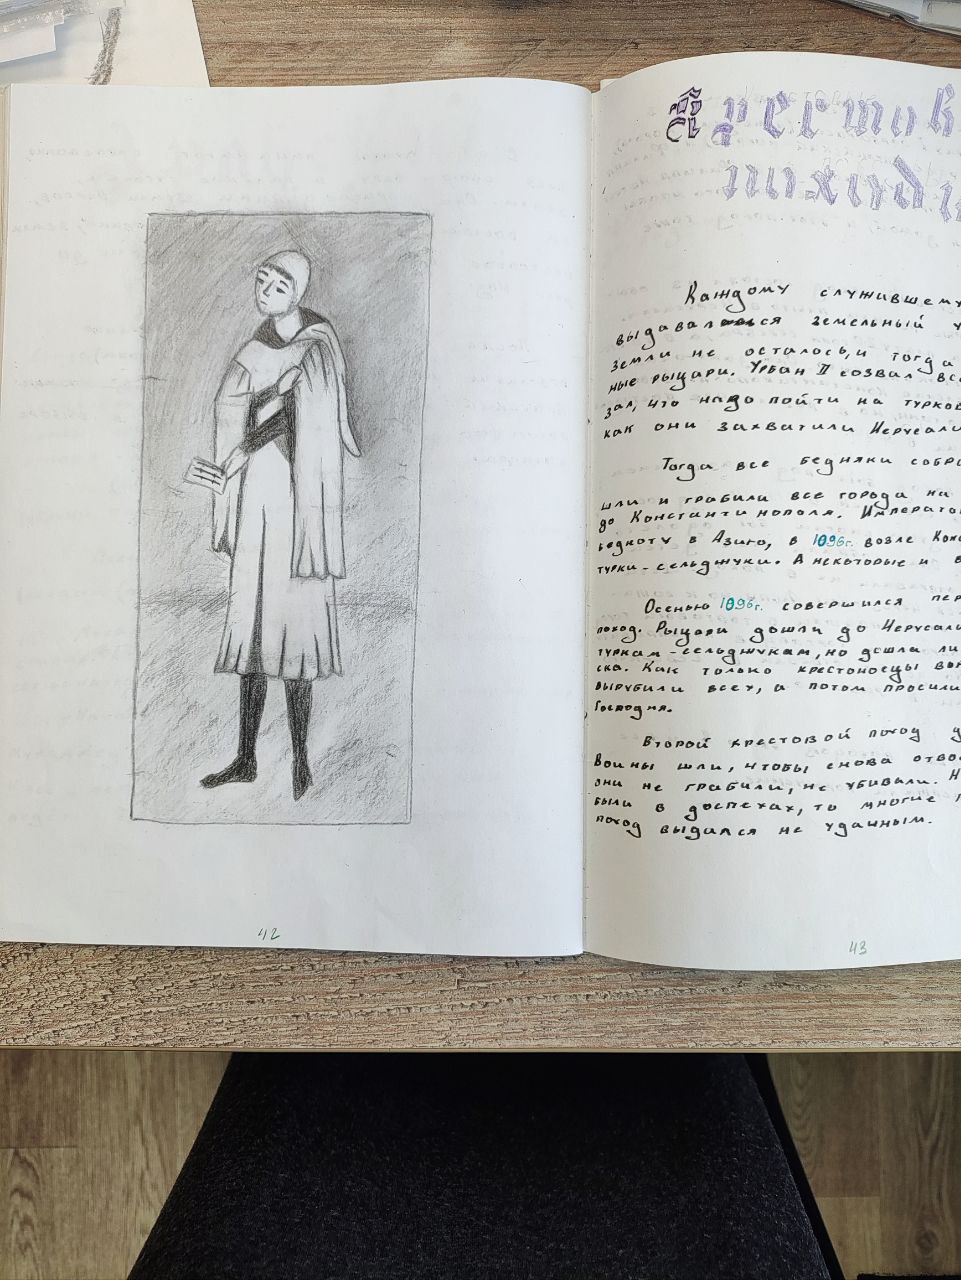 Каждому служившему
выдавался земельный у
земли не осталось, и тогда
ные рыцари. Урбан II созвал все
зал, что надо пойти на турков
как они захватили Иерусали
Тогда все бедняки собра
шли и грабили все города на
до Константинополя. Императо
бедноту в Азию, в 1096г. возле Конс
турки-сельджуки. А некоторые и в
Осенью 1096г. совершился пер
поход. Рыцари дошли до Иерусали
туркам-сельджукам, но дошла ли
ска. Как только крестоносцы вош
вырубили всех, а потом просили
Господня.
Второй крестовой поход д
Воины шли, чтобы снова отвое
они не грабили, не убивали. Н
были в доспехах, то многие п
поход выдался не удачным.
42
43